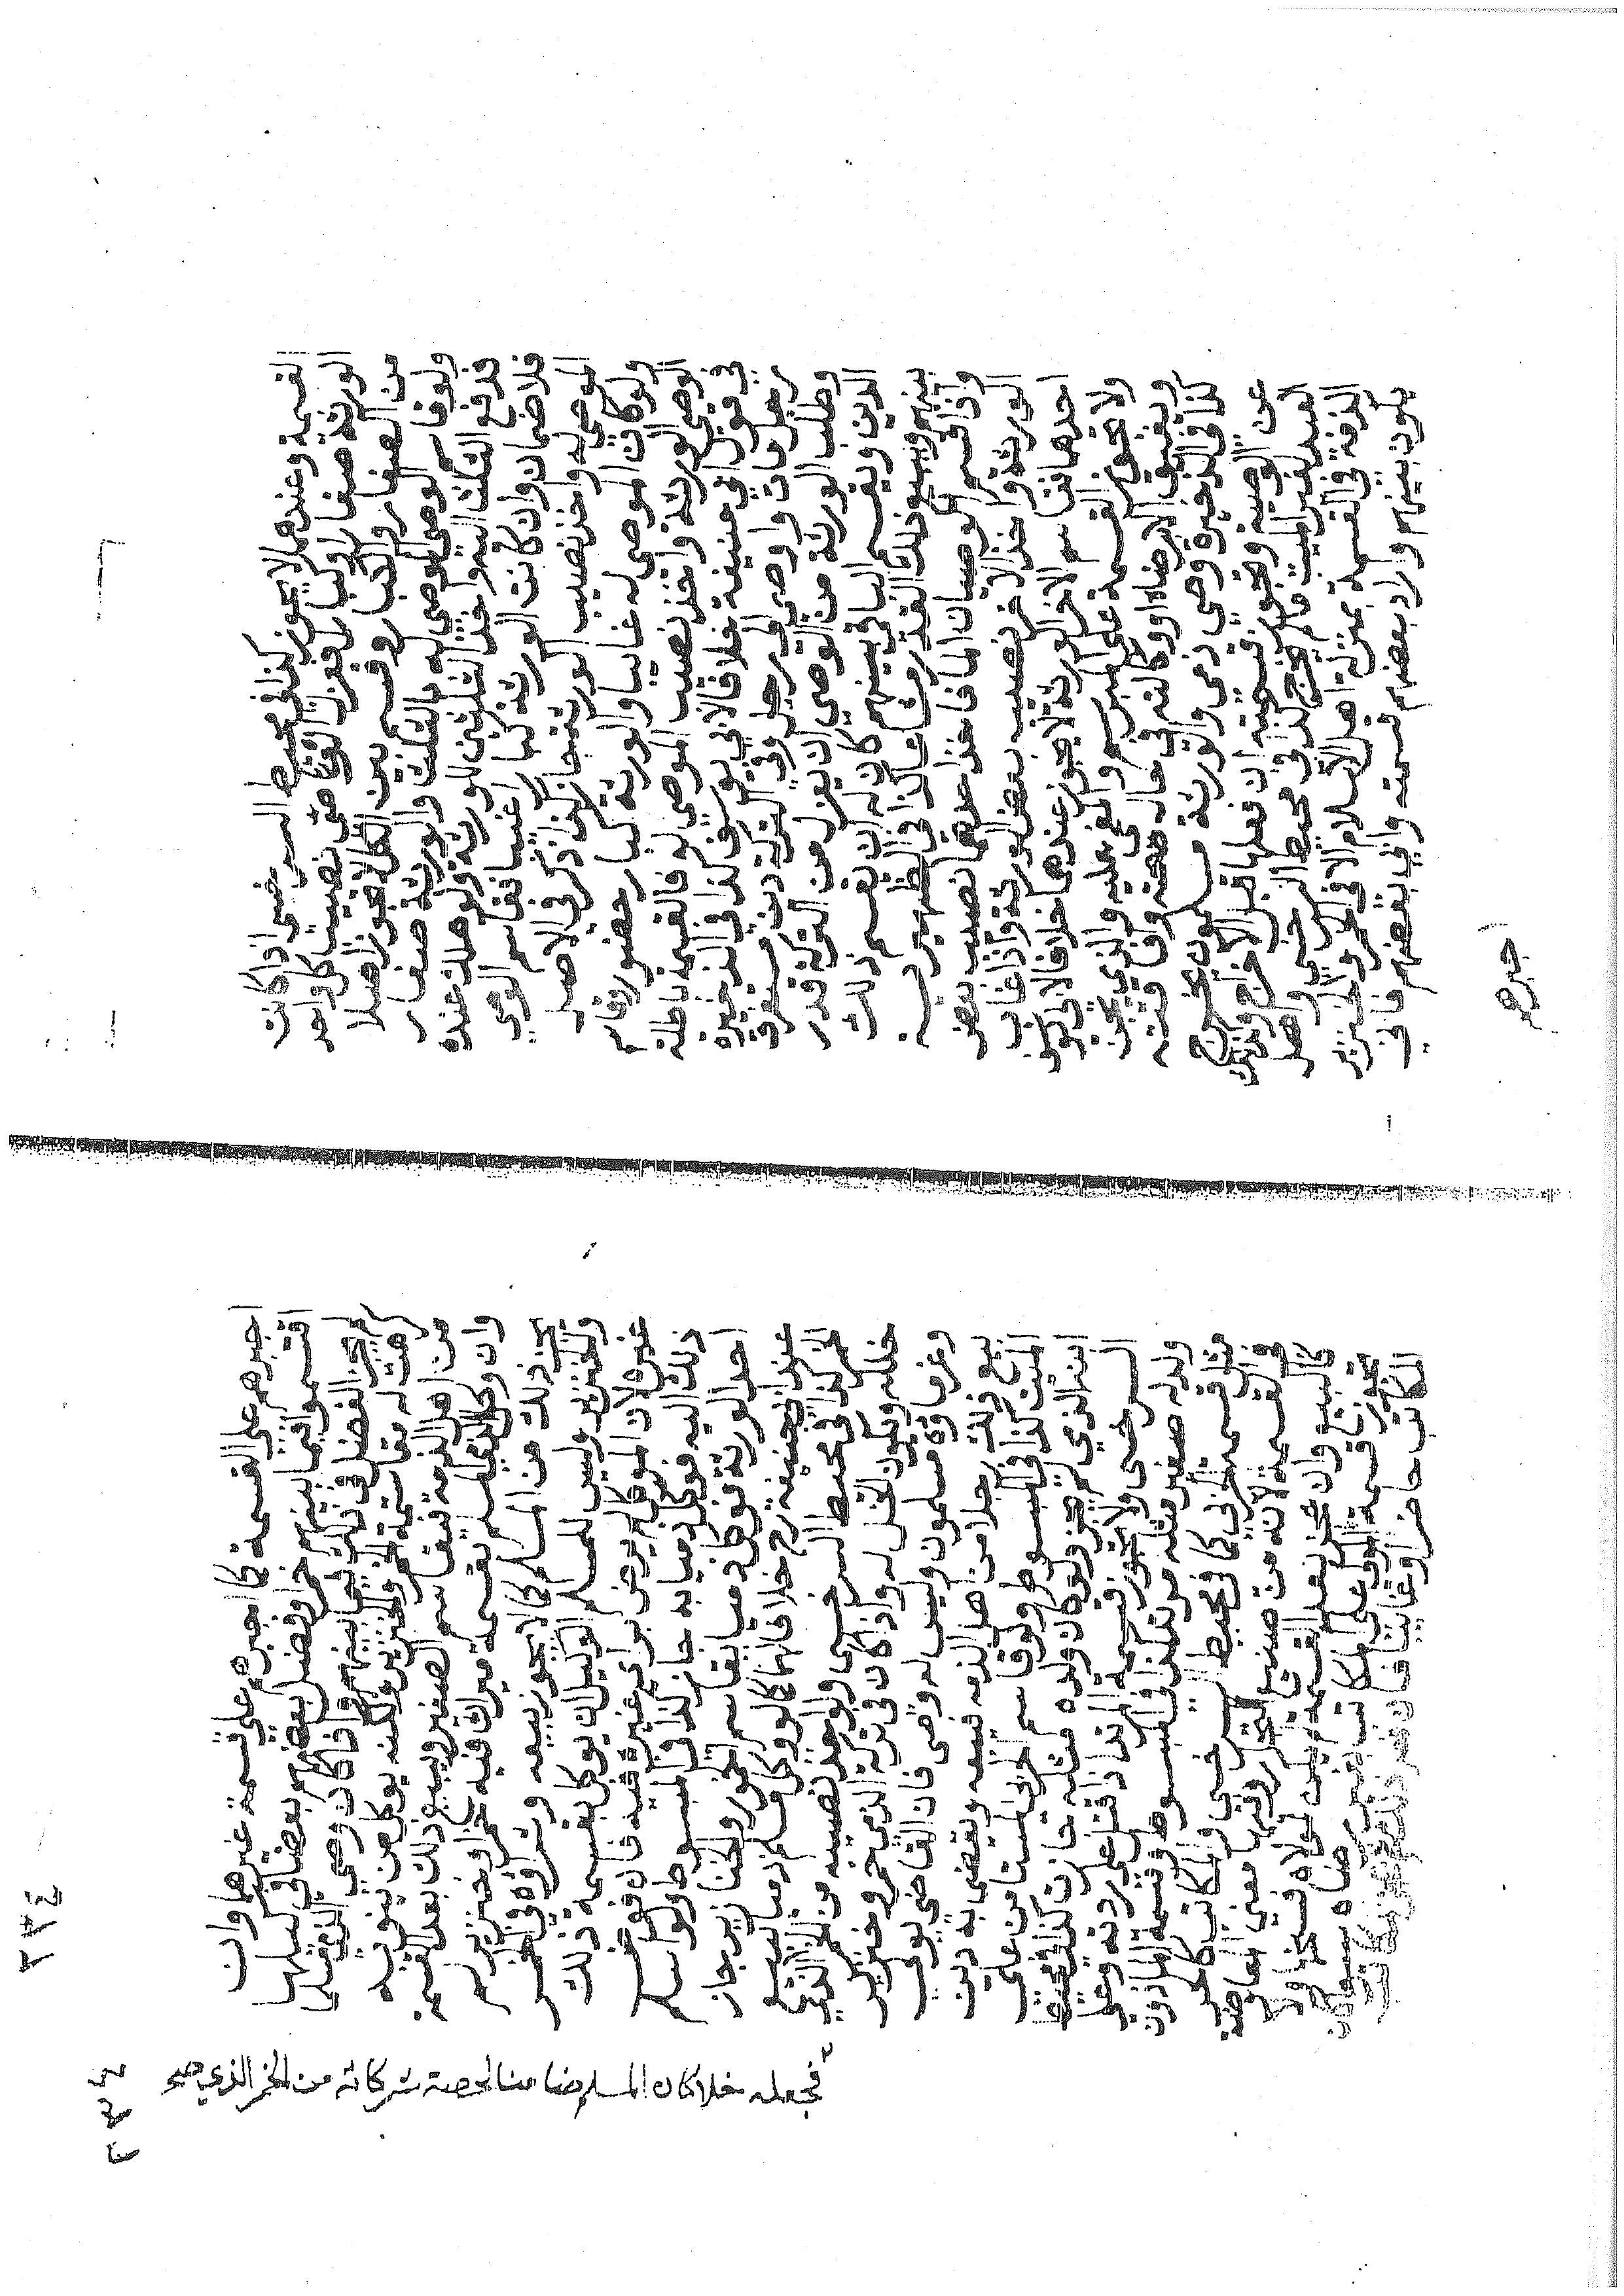 القسمة وعندهما لا يجوز كذا في محيط السرخسي اذا كانت
الورثة صغارا وكبارا فعزل القاضي نصيب كل واحد
من الصغار والكبار وقسم بين الكل لا يجوز اصلا
ولو قاسم الوصي الموصى له بالثلث والورثة صغار
فدفع الثلث اليه واخذ الثلثين للورثة فهلك عنده
فلا ضمان وان كانت الورثة كبارا غيبا فقاسم الوصي
الموصي له واخذ نصيب الورثة جاز كذا ذكر في الاصل
ولو كان الموصى له غايبا والورثة كبار حضور وقاسم
الوصي الورثة واخذ نصيب الموصي له فالقسمة باطلة
في قول ابي حنيفة خلافا لابي يوسف كذا في الذخيرة
رجل مات واوصى الى رجل وفي التركة دين مستغرق
وطلب الورثة من الوصي ان يعزل من التركة قدر
الدين ويقسم الباقي بينهم كان له ان يقسم ذلك
بينهم ويبيع ذلك القدر مشاعا كذا في الظهيرية
واذا قسم الوصيان المال فاخذ احدهما نصيب بعض
الورثة واخذ الاخر نصيب بعض الورثة واذا غاب
احدهما فقاسم الاخر الورثة لا يجوز عندهما خلافا لابي يوسف
ولا تجوز القسمة على المبرسم والمغمى عليه والذي يجن
ويفيق الا برضاه او وكالته في حال صحته وافاقته
كذا في الذخيرة وصي ذمي والورثة مسلمون يخرج
عن الوصية وتجوز قسمته ان فعلها قبل الاخراج وكذلك
العبد لغير الميت ما لم يخرج كذا في محيط السرخسي واهل
الذمة في القسمة بمنزلة اهل الاسلام الا في الخمر والخنزير
يكون بينهم واراد بعضهم قسمته وابي بعضهم فاني
اجبرهم
٢٣٤
اجبرهم على القسمة كما اجبرهم على قسمة غيرهما وان
اقتسموا فيما بينهم خمرا وفضل بعضهم بعضا في كيلها
لم يجز الفضل في ذلك فيما بينهم واذا كان وصي الذمي مسلما
كرهت له مقاسمة الخمر والخنزير ولكنه يوكل من ينوب به
من اهل الذمة فيقاسم الصغير ويبيع ذلك بعد القسمة
وان وكل الذمي المسلم بقسمة ميراث فيه خمر وخنزير لم
يجز ذلك من المسلم كما لا يجوز بيعه وشراؤه في الخمر
والخنزير وليس للمسلم الوكيل ان يوكل بقسمة ذلك
غيره لان الموكل لم يرض براي غيره فيه فان فوض
ذلك اليه فوكل ذميا به جاز كذا في المبسوط ولو اسلم
احد الورثة فوكل ذميا يقاسم الخمور والخنازير جاز
عند ابي حنيفة رح خلافا لهما كما لو وكل مسلم ذميا ببيع
الخمر كذا في محيط السرخسي ولو اخذ نصيبه من الخمر الذي
فجعله خلا كان المسلم ضامنا لحصة شركائه من الخمر الذي صح
خلله ويكون الخل له واذا كان في تركة الذمي خمر وخنزير
وغرماؤه مسلمون وليس له وصي فان القاضي يولي
بيع ذلك رجلا من اهل الذمة فيبيعه ويقضي به دين
الميت كذا في المبسوط ولو قاسم الحربي المستامن على
ابنه الذمي لم يجز ولو كان ولده مثله جازت كذا في محيط
السرخسي ولا تجوز قسمة المرتد اذا قتل على ردته وعلى
ولد له صغير مثله مرتد كذا في المبسوط وقسمة الماذون
مثل قسمة الحر كما في محيط السرخسي والمكاتب كالحر
في القسمة لانه من صنيع التجار وفيها معنى المعاوضة
كالبيع وان عجز بعد القسمة لم يكن لمولاه فسخها ولا
تجوز قسمة المولى على المكاتب بغير رضاه سواء كان
المكاتب حاضرا او غايبا فان فعل ذلك ثم عجز المكاتب